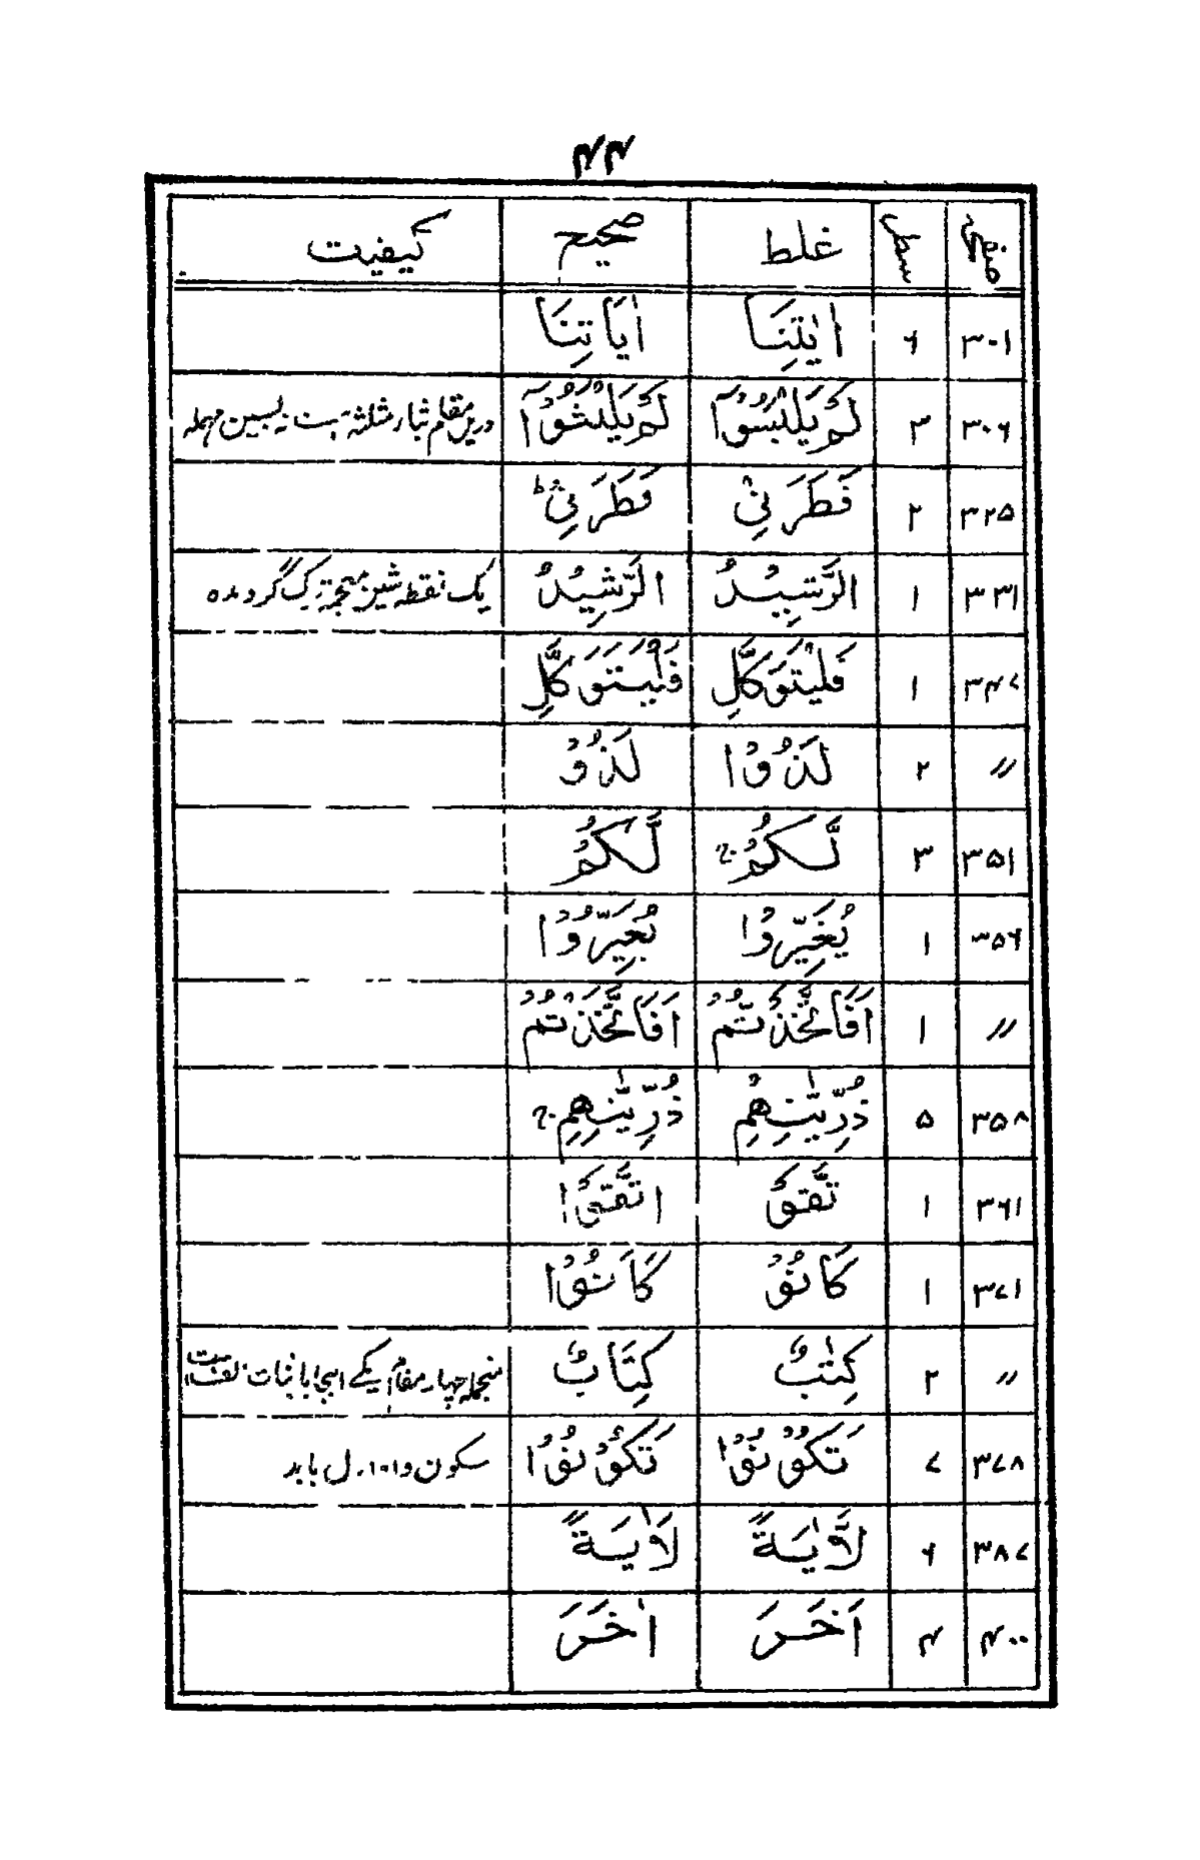 ۴۴
صفحہ سطر غلط صحیح کیفیت
۳۰۱ ۶ اٰیٰتِنَا اٰیَاتِنَا
۳۰۶ ۳ لَمْ یَلْبَسُوْٓا لَمْ یَلْبَثُوْٓا دریں مقام ثاء مثلثہ است نہ بسین مہملہ
۳۲۵ ۲ فَطَرَنِیْ فَطَرَنِیْ ؕ
۳۳۱ ۱ الرَّسِیْدُ الرَّشِیْدُ یک نقطہ شین معجمہ ترک گردیدہ
۳۴۷ ۱ فَلْیَتَوَكَّلِ فَلْیَتَوَكَّلِ
〃 ۲ لَذُوْا لَذُوْ
۳۵۱ ۳ لَّكُمْ لَّكُمْ
۳۵۶ ۱ یُغَیِّرُوْا یُغَیِّرُوْا
〃 ۱ اَفَاتَّخَذْتُّمْ اَفَاتَّخَذْتُمْ
۳۵۸ ۵ ذُرِّیّٰتِهِمْ ذُرِّیّٰتِهِمْ
۳۶۱ ۱ تَّقَوْ اتَّقَوْا
۳۷۱ ۱ كَانُوْ كَانُوْا
〃 ۲ كِتٰبٌ كِتَابٌ منجملہ چہار مقام یکے اینجا باثبات الف است
۳۷۸ ۷ تَكُوْنُوْا تَكُوْنُوْا سکون واو اول باید
۳۸۷ ۶ لَاٰیَةً لَاٰیَةً
۴۰۰ ۴ اَخَرَ اٰخَرَ